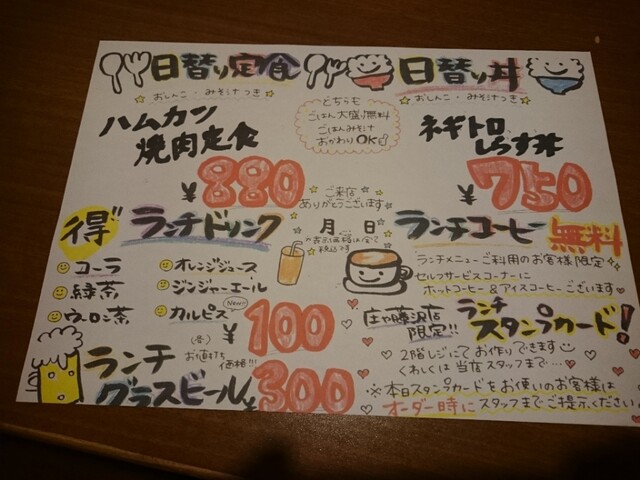 日替り定食
おしんこ・みそ汁つき
ハムカツ
焼肉定食
¥880
どちらも
ごはん大盛り無料
ごはんみそ汁
おかわりOK
日替り丼
おしんこ・みそ汁つき
ネギトロ
しらす丼
¥750
ご来店
ありがとうございます
月 日
※表示価格は全て
税込です
得!!
ランチドリンク
コーラ
緑茶
ウーロン茶
オレンジジュース
ジンジャーエール
カルピス
New!!
(各)
¥100
ランチコーヒー 無料
ランチメニューご利用のお客様限定
セルフサービスコーナーに
ホットコーヒー&アイスコーヒーございます
ランチ
グラスビール
お値打ち
価格!!!
¥300
庄や藤沢店
限定!!
ランチ
スタンプカード!
2階レジにてお作りできます
くわしくは当店スタッフまで…
※本日スタンプカードをお使いのお客様は
オーダー時にスタッフまでご提示ください